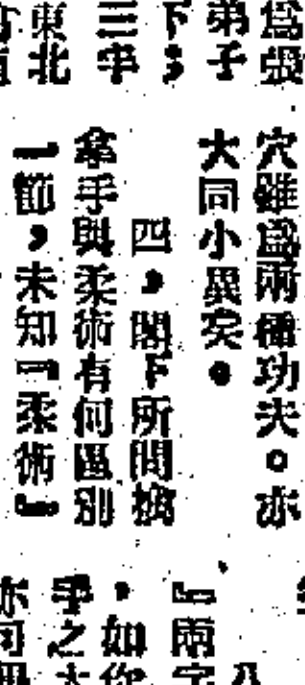 為張
弟子
下;
三
東北
穴雖為兩種功夫。亦
大同小異矣。
四,閣下所問擒
拿手與柔術有何區別
一節,未知『柔術』
』兩字
,如你
之大
亦何